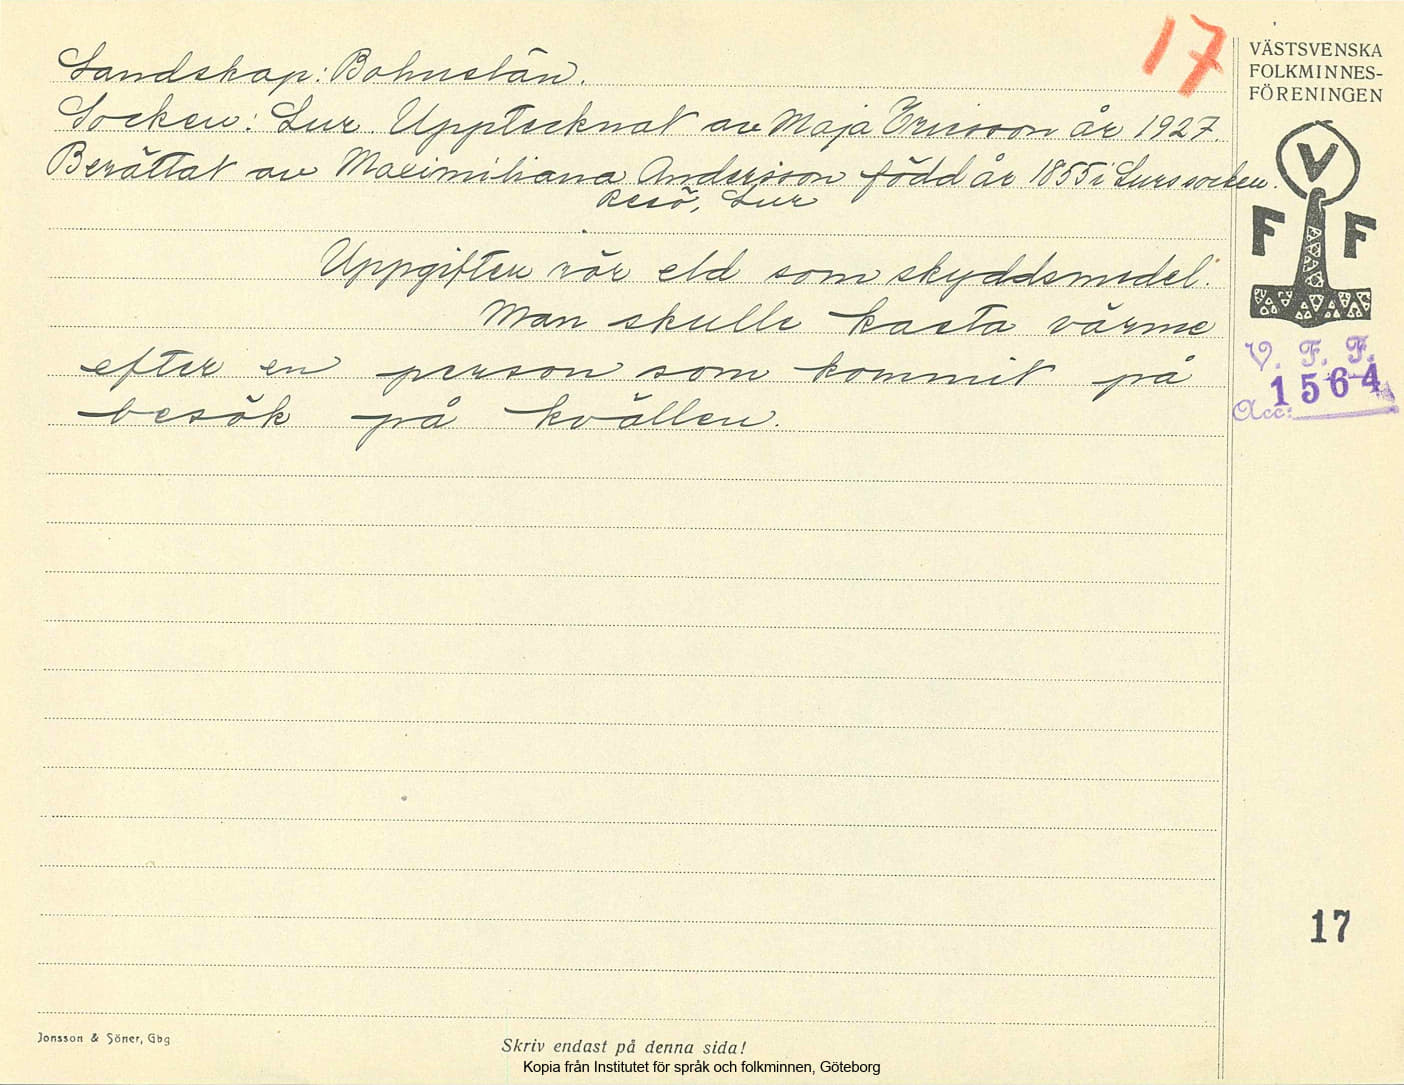 17
Landskap: Bohuslän.
Socken: Lur. Upptecknat av Maja Ericsson år 1927.
Berättat av Maximiliana Andersson född år 1855 i Lurs socken.
Resö, Lur
Uppgiften rör eld som skyddsmedel.
Man skulle kasta värme
efter en person som kommit på
besök på kvällen.
VÄSTSVENSKA
FOLKMINNES-
FÖRENINGEN
V
F F
V. F. F.
1564
Acc:
17
Jonsson & Söner, Gbg
Skriv endast på denna sida!
Kopia från Institutet för språk och folkminnen, Göteborg